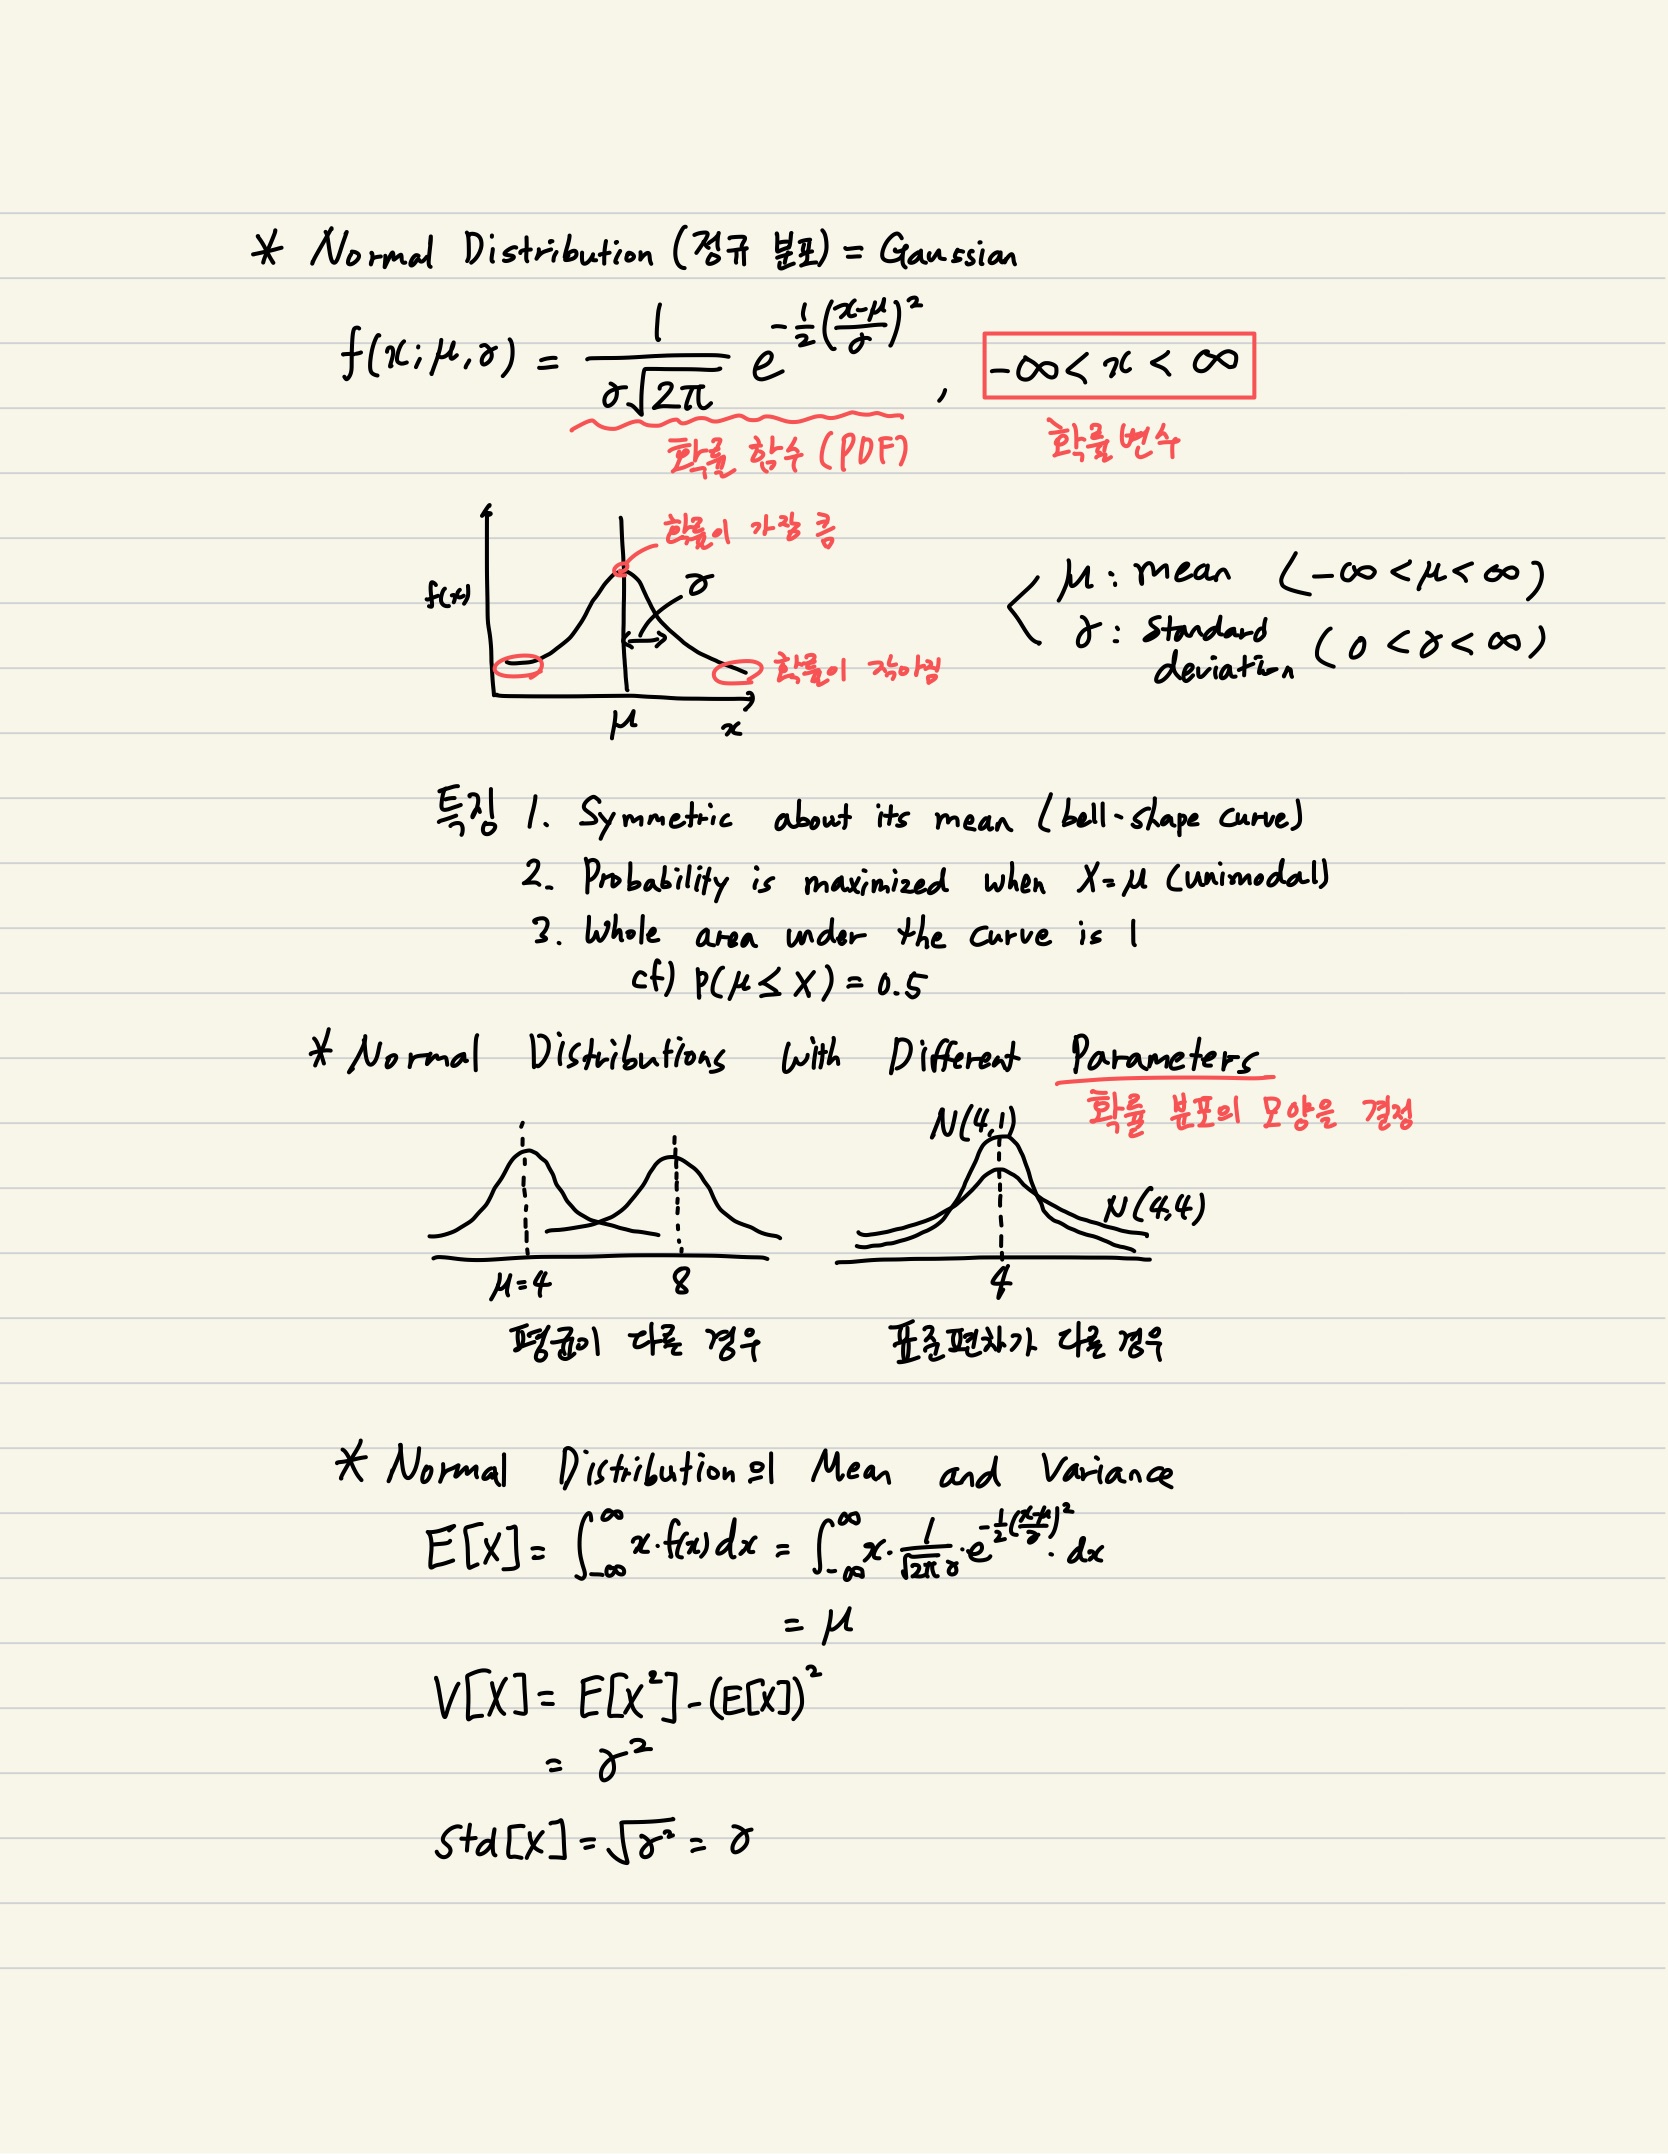 * Normal Distribution (정규 분포) = Gaussian
f(x; μ, σ) = 1/(σ√2π) e^(-1/2((x-μ)/σ)²) , -∞ < x < ∞
확률 함수 (PDF)
확률변수
확률이 가장 큼
σ
f(x)
확률이 작아짐
μ
x
μ : mean (-∞ < μ < ∞)
σ : standard deviation (0 < σ < ∞)
특징 1. Symmetric about its mean (bell-shape curve)
2. Probability is maximized when X=μ (unimodal)
3. Whole area under the curve is 1
cf) P(μ ≤ X) = 0.5
* Normal Distributions with Different Parameters
확률 분포의 모양을 결정
μ=4
8
평균이 다를 경우
N(4,1)
N(4,4)
4
표준편차가 다를 경우
* Normal Distribution의 Mean and Variance
E[X] = ∫_{-∞}^{∞} x·f(x) dx = ∫_{-∞}^{∞} x· 1/(√2π σ) ·e^(-1/2((x-μ)/σ)²) · dx
= μ
V[X] = E[X²] - (E[X])²
= σ²
Std[X] = √σ² = σ